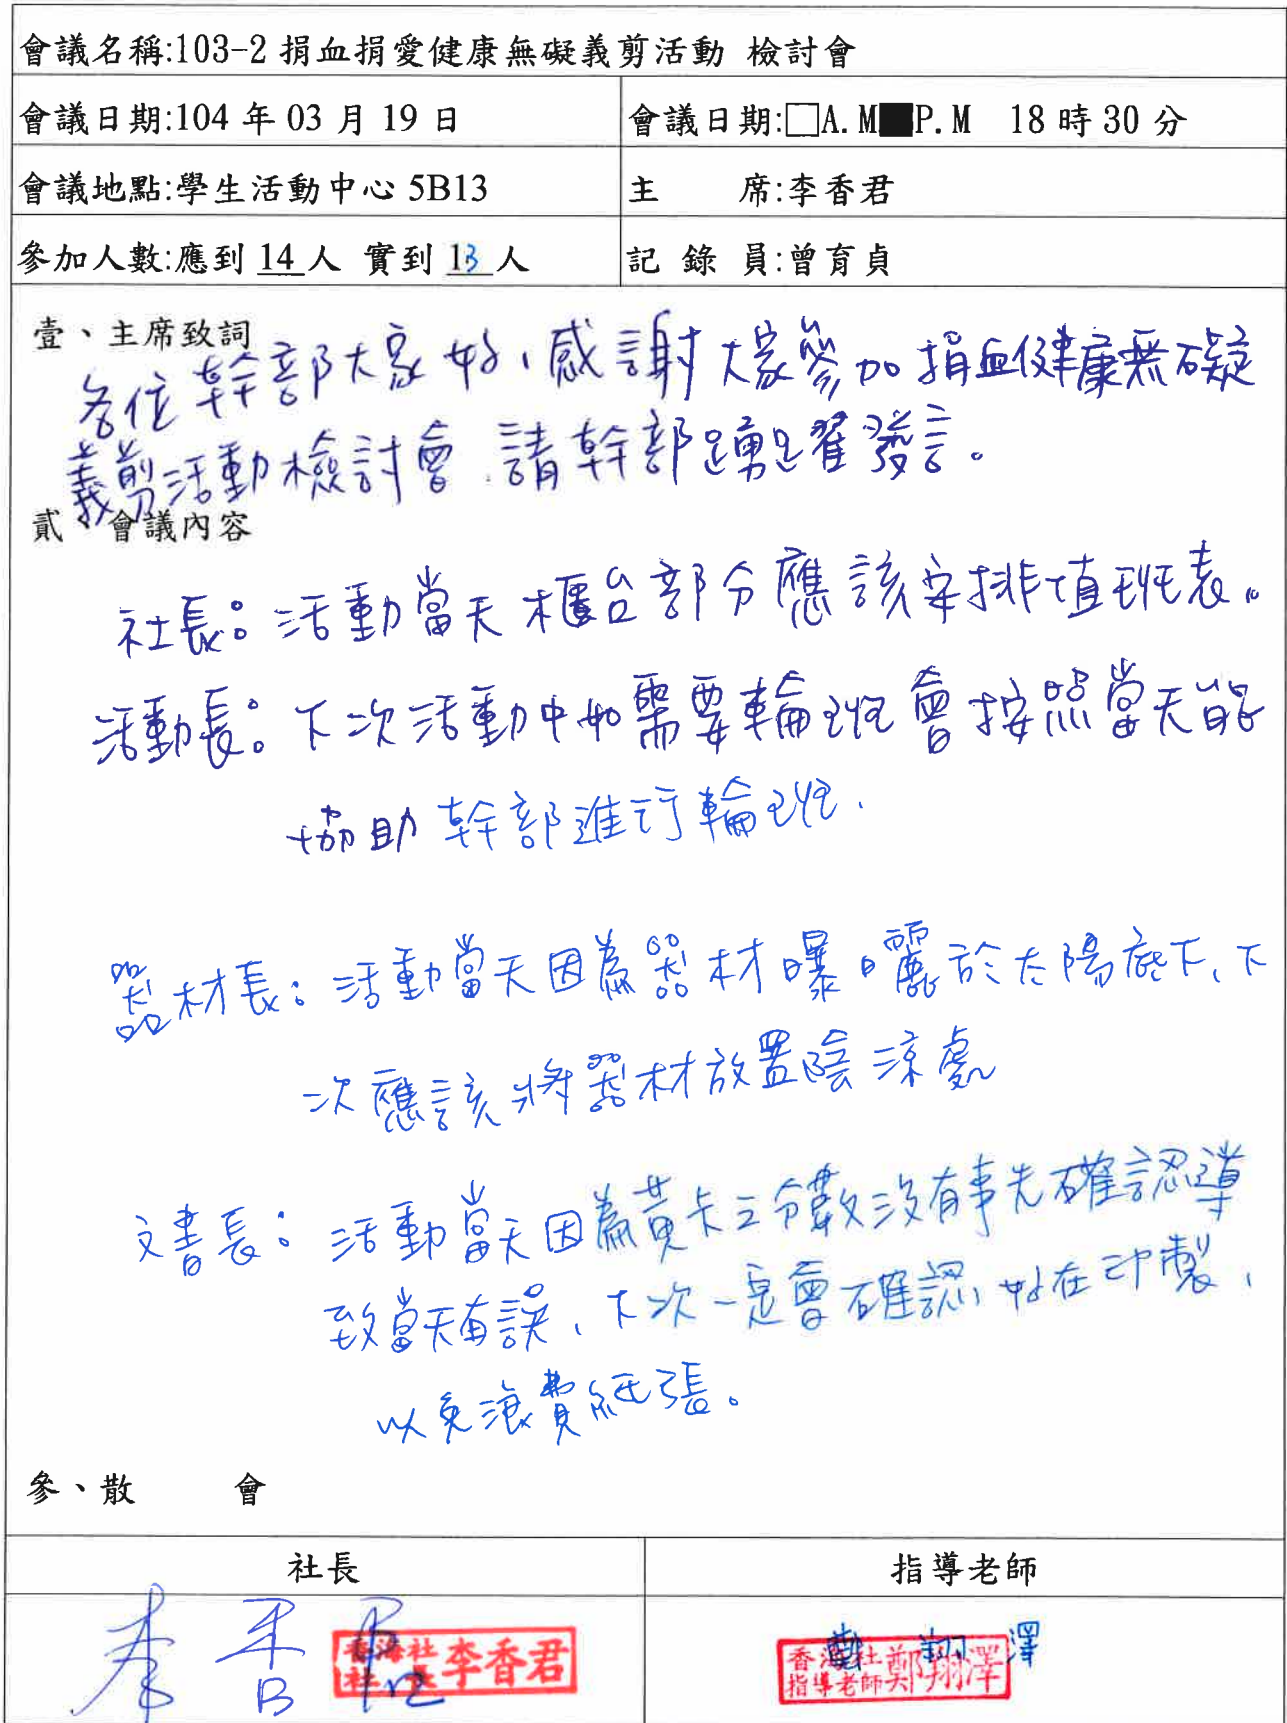 會議名稱:103-2 捐血捐愛健康無礙義剪活動 檢討會
會議日期:104 年 03 月 19 日 會議日期:□A.M■P.M 18 時 30 分
會議地點:學生活動中心 5B13 主 席:李香君
參加人數:應到 14 人 實到 13 人 記 錄 員:曾育貞
壹、主席致詞
各位幹部大家好,感謝大家參加捐血健康無礙
義剪活動檢討會.請幹部踴躍發言。
貳、會議內容
社長:活動當天櫃台部分應該安排值班表。
活動長:下次活動中如需要輪班會按照當天能
協助幹部進行輪班.
器材長:活動當天因為器材曝曬於太陽底下、下
次應該將器材放置陰涼處
文書長:活動當天因為黃卡工分數沒有事先確認導
致當天有誤、下次一定會確認好在印製,
以免浪費紙張。
參、散 會
社長 指導老師
李香君 香海社社長李香君 鄭翔澤 香海社指導老師鄭翔澤